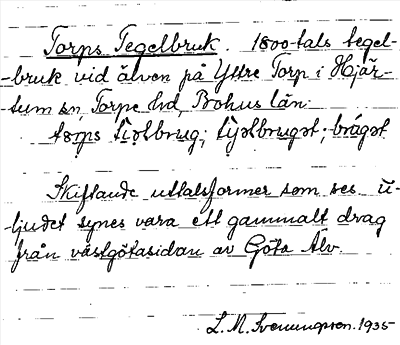 Torps Tegelbruk. 1800-tals tegel-
-bruk vid älven på Yttre Torp i Hjär-
-tum sn, Torpe hd, Bohus län.
Skiftande uttalsformer som ses. ü-
-ljudet synes vara ett gammalt drag
från västgötasidan av Göta Älv.
L. M. Svenungsson. 1935